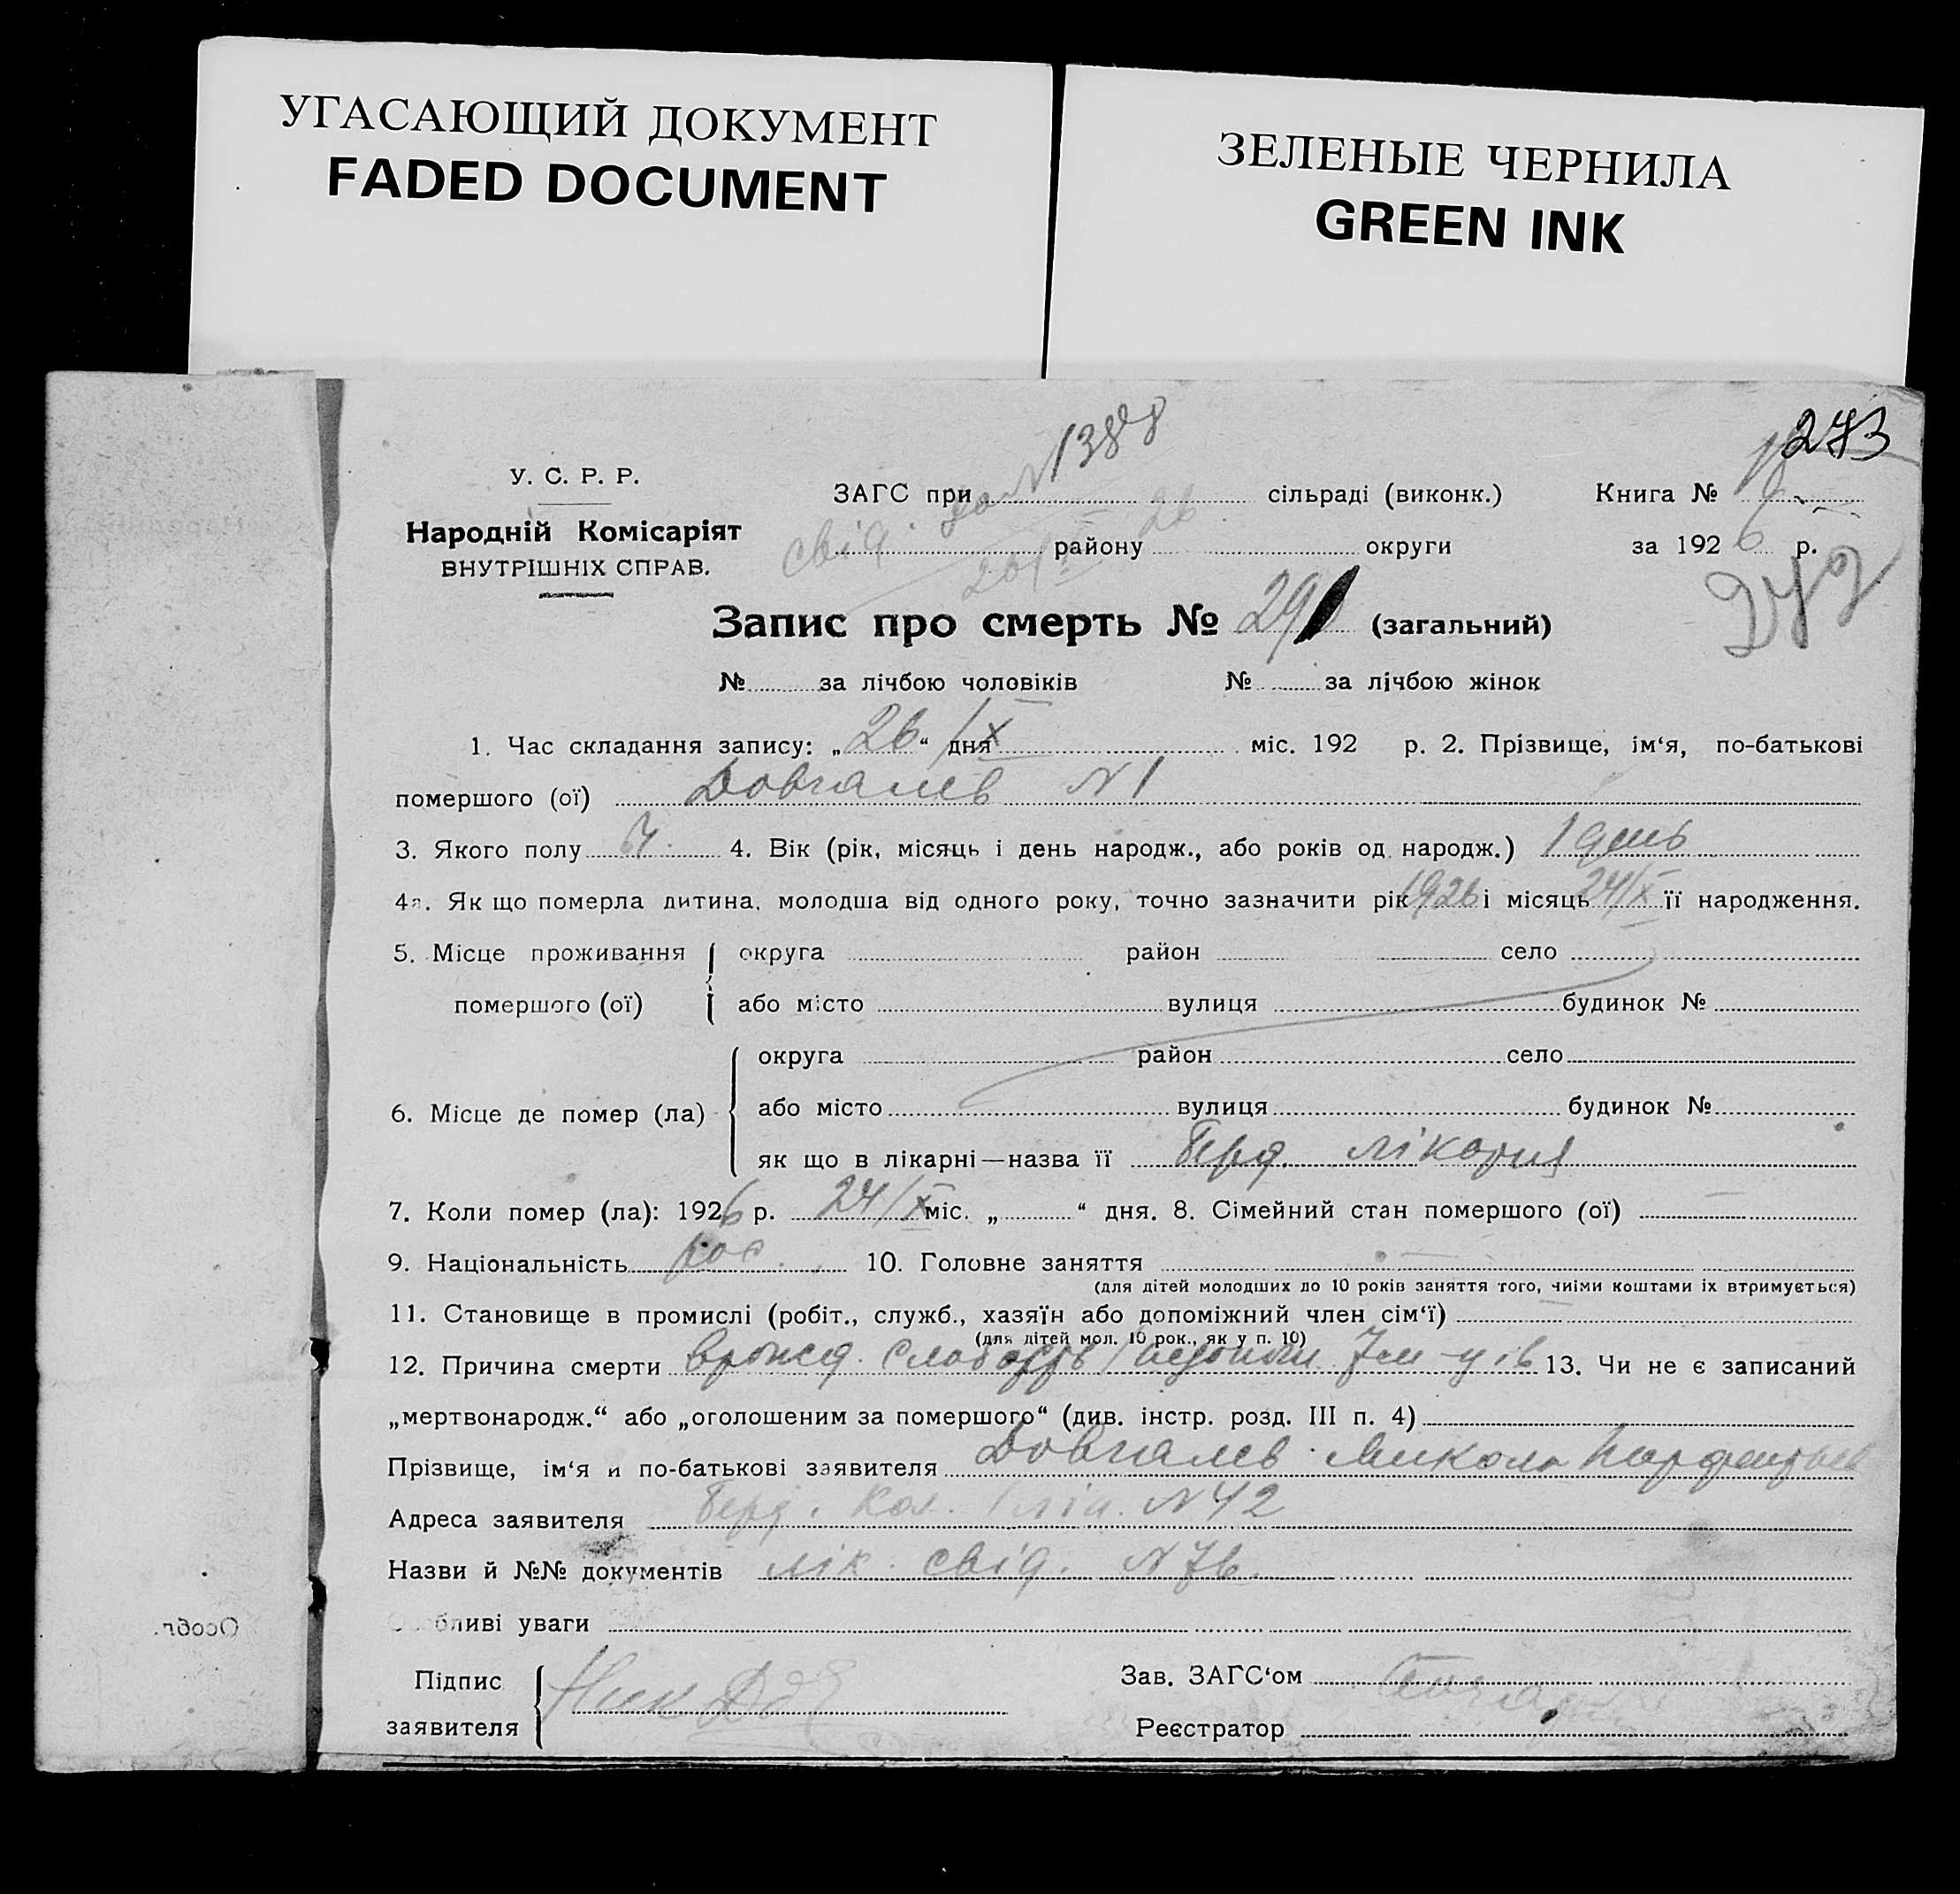 УГАСАЮЩИЙ ДОКУМЕНТ
FADED DOCUMENT
ЗЕЛЕНЫЕ ЧЕРНИЛА
GREEN INK
273
У. С. Р. Р.
Народній Комісаріят
ВНУТРІШНІХ СПРАВ.
№ 1388
ЗАГС при сільраді (виконк.) Книга №
свід. 26
району округи за 1926 р.
Запис про смерть № 291 (загальний)
№ за лічбою чоловіків № за лічбою жінок
1. Час складання запису: „26“ дня /X міс. 192 р. 2. Прізвище, ім‘я, по-батькові
помершого (ої) Довгалев №1
3. Якого полу Ч. 4. Вік (рік, місяць і день народж., або років од народж.) 1 день
4а. Як що померла дитина, молодша від одного року, точно зазначити рік 1926 і місяць 24/X її народження.
5. Місце проживання округа район село
помершого (ої) або місто вулиця будинок №
6. Місце де помер (ла) округа район село
або місто вулиця будинок №
як що в лікарні—назва її Берд. лікарня
7. Коли помер (ла): 1926 р. 24/X міс. „ “ дня. 8. Сімейний стан помершого (ої) —
9. Національність рос. 10. Головне заняття —
(для дітей молодших до 10 років заняття того, чиїми коштами їх втримується)
11. Становище в промислі (робіт., служб., хазяїн або допоміжний член сім‘ї)
(для дітей мол. 10 рок., як у п. 10)
12. Причина смерти врожд. слабость 7 м-ців 13. Чи не є записаний
„мертвонародж.“ або „оголошеним за помершого“ (див. інстр. розд. III п. 4)
Прізвище, ім‘я и по-батькові заявителя Довгалев Микола
Адреса заявителя Берд. Кол. №42
Назви й №№ документів лік. свід. №76.
Особливі уваги
Особг.
Підпис
заявителя
Зав. ЗАГС‘ом
Реєстратор